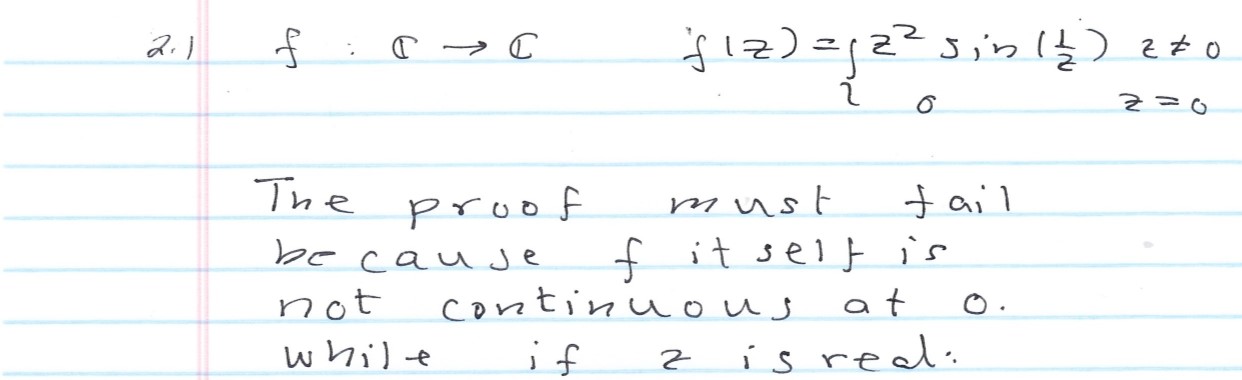 2.1 f : ℂ → ℂ f(z) = { z² sin(1/z) z ≠ 0
0 z = 0
The proof must fail
because f itself is
not continuous at 0.
while if z is real: